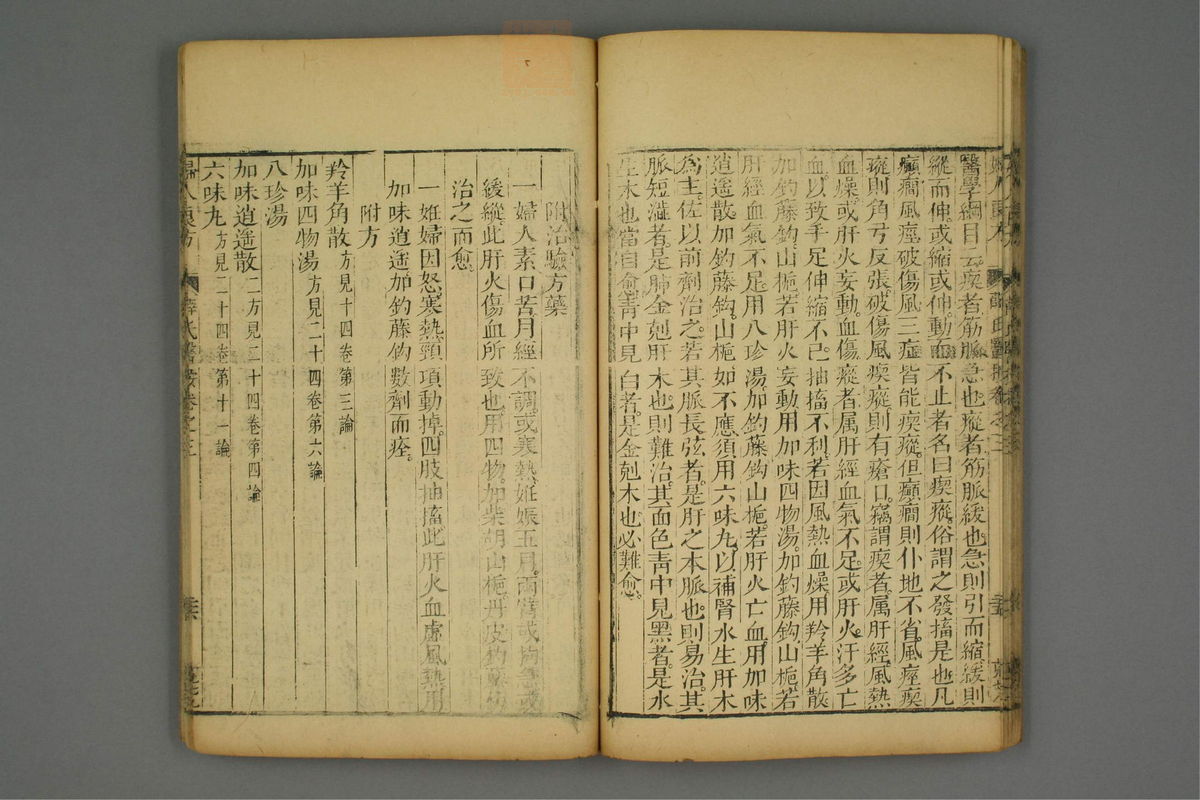 醫學綱目云瘈者筋脈急也瘲者筋脈緩也急則引而縮緩則
縱而伸或縮或伸動而不止者名曰瘈瘲俗謂之發搐是也凡
癲癇風痙破傷風三症皆能瘈瘲但癲癇則仆地不省風痙瘈
瘲則角弓反張破傷風瘈瘲則有瘡口竊謂瘈者属肝經風熱
血燥或肝火妄動血傷瘲者属肝經血氣不足或肝火汗多亡
血以致手足伸縮不已抽搐不利若因風熱血燥用羚羊角散
加鈎藤鈎山梔若肝火妄動用加味四物湯加鈎藤鈎山梔若
肝經血氣不足用八珍湯加鈎藤鈎山梔若肝火亡血用加味
逍遥散加鈎藤鈎山梔如不應須用六味丸以補腎水生肝木
為主佐以前劑治之若其脈長弦者是肝之本脈也則易治其
脈短澁者是肺金尅肝木也則難治其面色青中見黑者是水
生木也當自愈青中見白者是金尅木也必難愈
附治驗方藥
一婦人素口苦月經不調或寒熱妊娠五月兩
緩縱此肝火傷血所致也用四物加柴胡山梔丹皮鈎藤
治之而愈
一妊婦因怒寒熱頸項動掉四肢抽搐此肝火血虛風熱用
加味逍遥加鈎藤鈎數劑而痊
附方
羚羊角散方見十四卷第三論
加味四物湯方見二十四卷第六論
八珍湯
加味逍遥散二方見二十四卷第四論
六味丸方見二十四卷第十一論
婦人良方 薛氏醫按卷之三